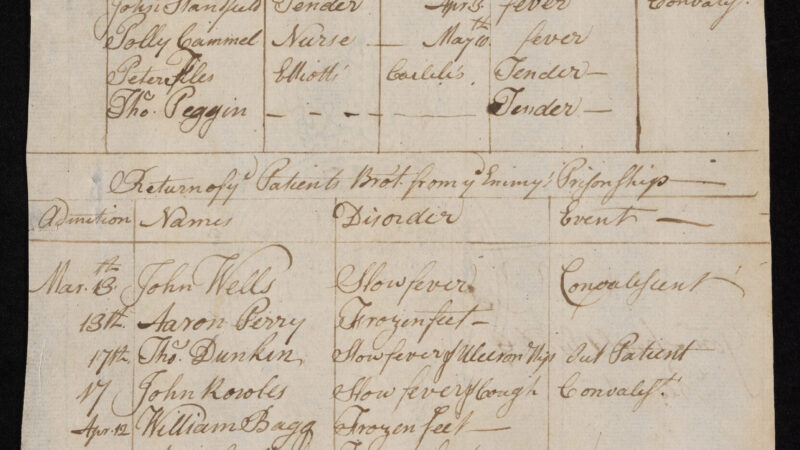 John Standfield Tender Apr. 3. fever Convales.t
Polly Cammel Nurse — May 10.th fever
Peter Files Elliotts Tender —
Tho. Peggin - - - - — — Tender —
Return of y.e Patients Bro.t from y.e Enimy's Prison ship —
Admition Names Disorder Event —
Mar. 13.th John Wells Slow fever Convalescent
13th. Aaron Perry Frozen feet —
17th. Tho. Dunkin Slow fever & Ulcer on Hip Out Patient
17 John Rowles Slow fever & Cough Convales.t
Apr. 12 William Bagg Frozen feet —